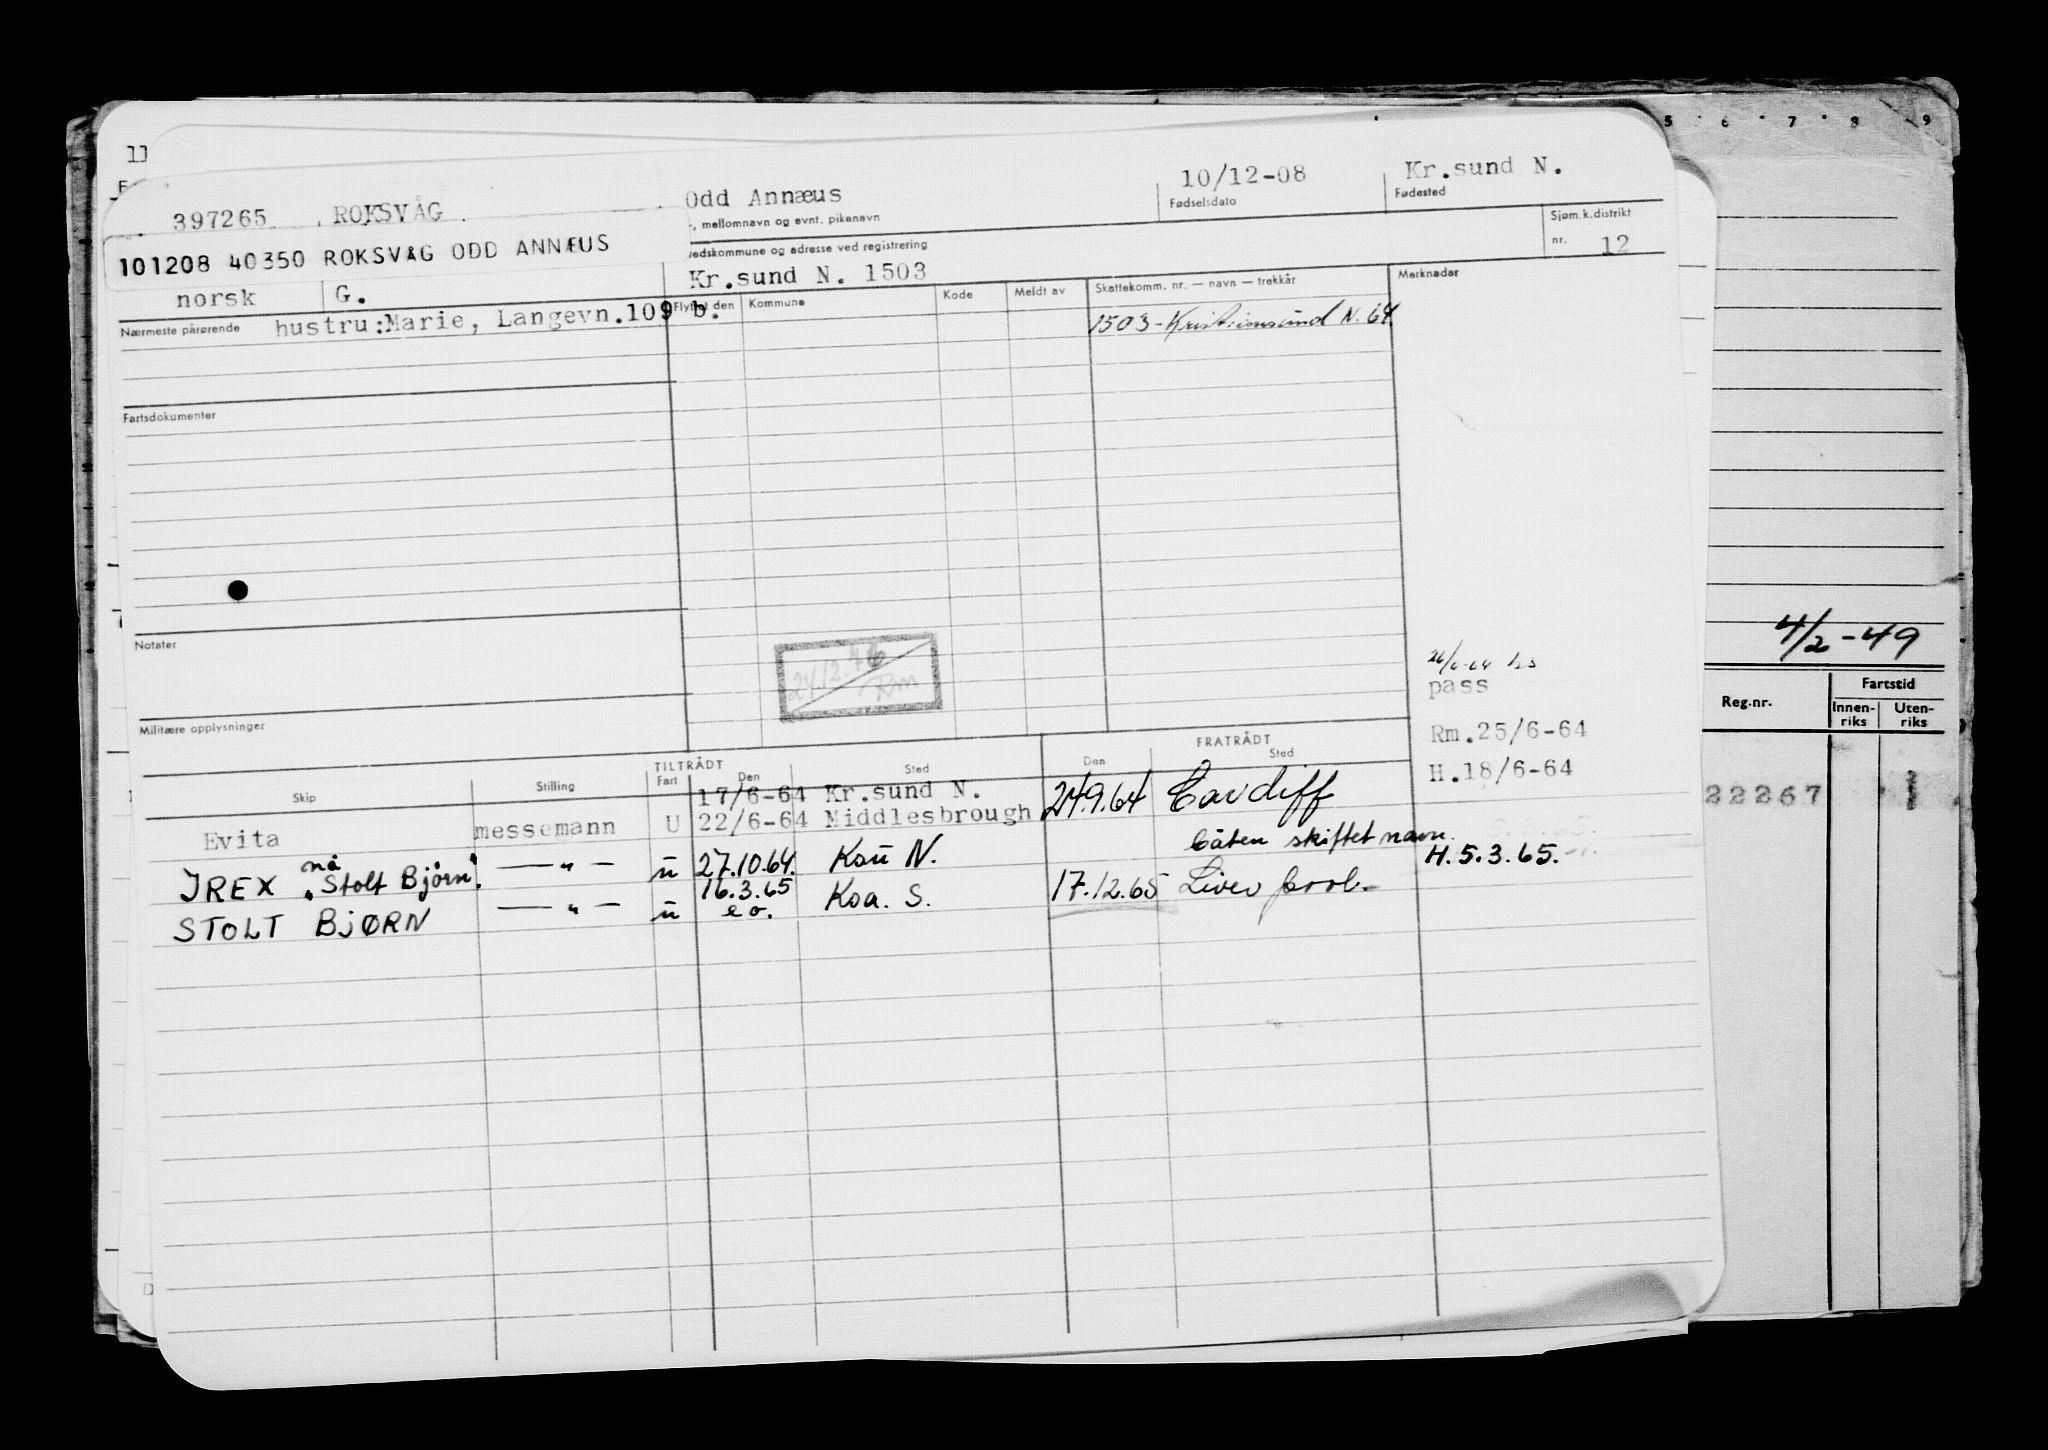 11
5 6 7 8 9
397265 ROKSVÅG Odd Annæus 10/12-08 Kr.sund N.
, mellomnavn og evnt. pikenavn Fødselsdato Fødested
101208 40350 ROKSVÅG ODD ANNÆUS
edskommune og adresse ved registrering Sjøm.k.distrikt
nr. 12
norsk G. Kr.sund N. 1503
Nærmeste pårørende hustru:Marie, Langevn.109 b.
Flyttet den Kommune Kode Meldt av Skattekomm. nr. — navn — trekkår Merknader
1503-Kristiansund N. 64
Fartsdokumenter
Notater
24/12.76
Rm
Militære opplysninger
4/2-49
Reg.nr. Fartstid
Innen-riks Uten-riks
22267
pass
Rm.25/6-64
H.18/6-64
TILTRÅDT FRATRÅDT
Skip Stilling Fart Den Sted Den Sted
17/6-64 Kr.sund N.
Evita messemann U 22/6-64 Middlesbrough 24.9.64 Cardiff
nå båten skiftet navn.
IREX "Stolt Bjørn" — " — u 27.10.64. Ksu N. H.5.3.65.
16.3.65
STOLT BJØRN — " — u e o. Ksa. S. 17.12.65 Liverpool.